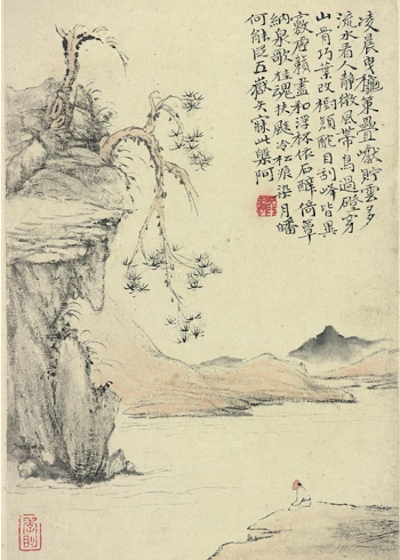 凌晨曳策疊巘貯雲多
流水看人靜微風帶鳥過磴穿
山骨巧葉改樹顏酡目刮峰皆異
虛籟盡和浮杯依石醉倚簟
納泉歌桂魂扶颷冷松痕染月皤
何能臣五嶽矢寐此槃阿